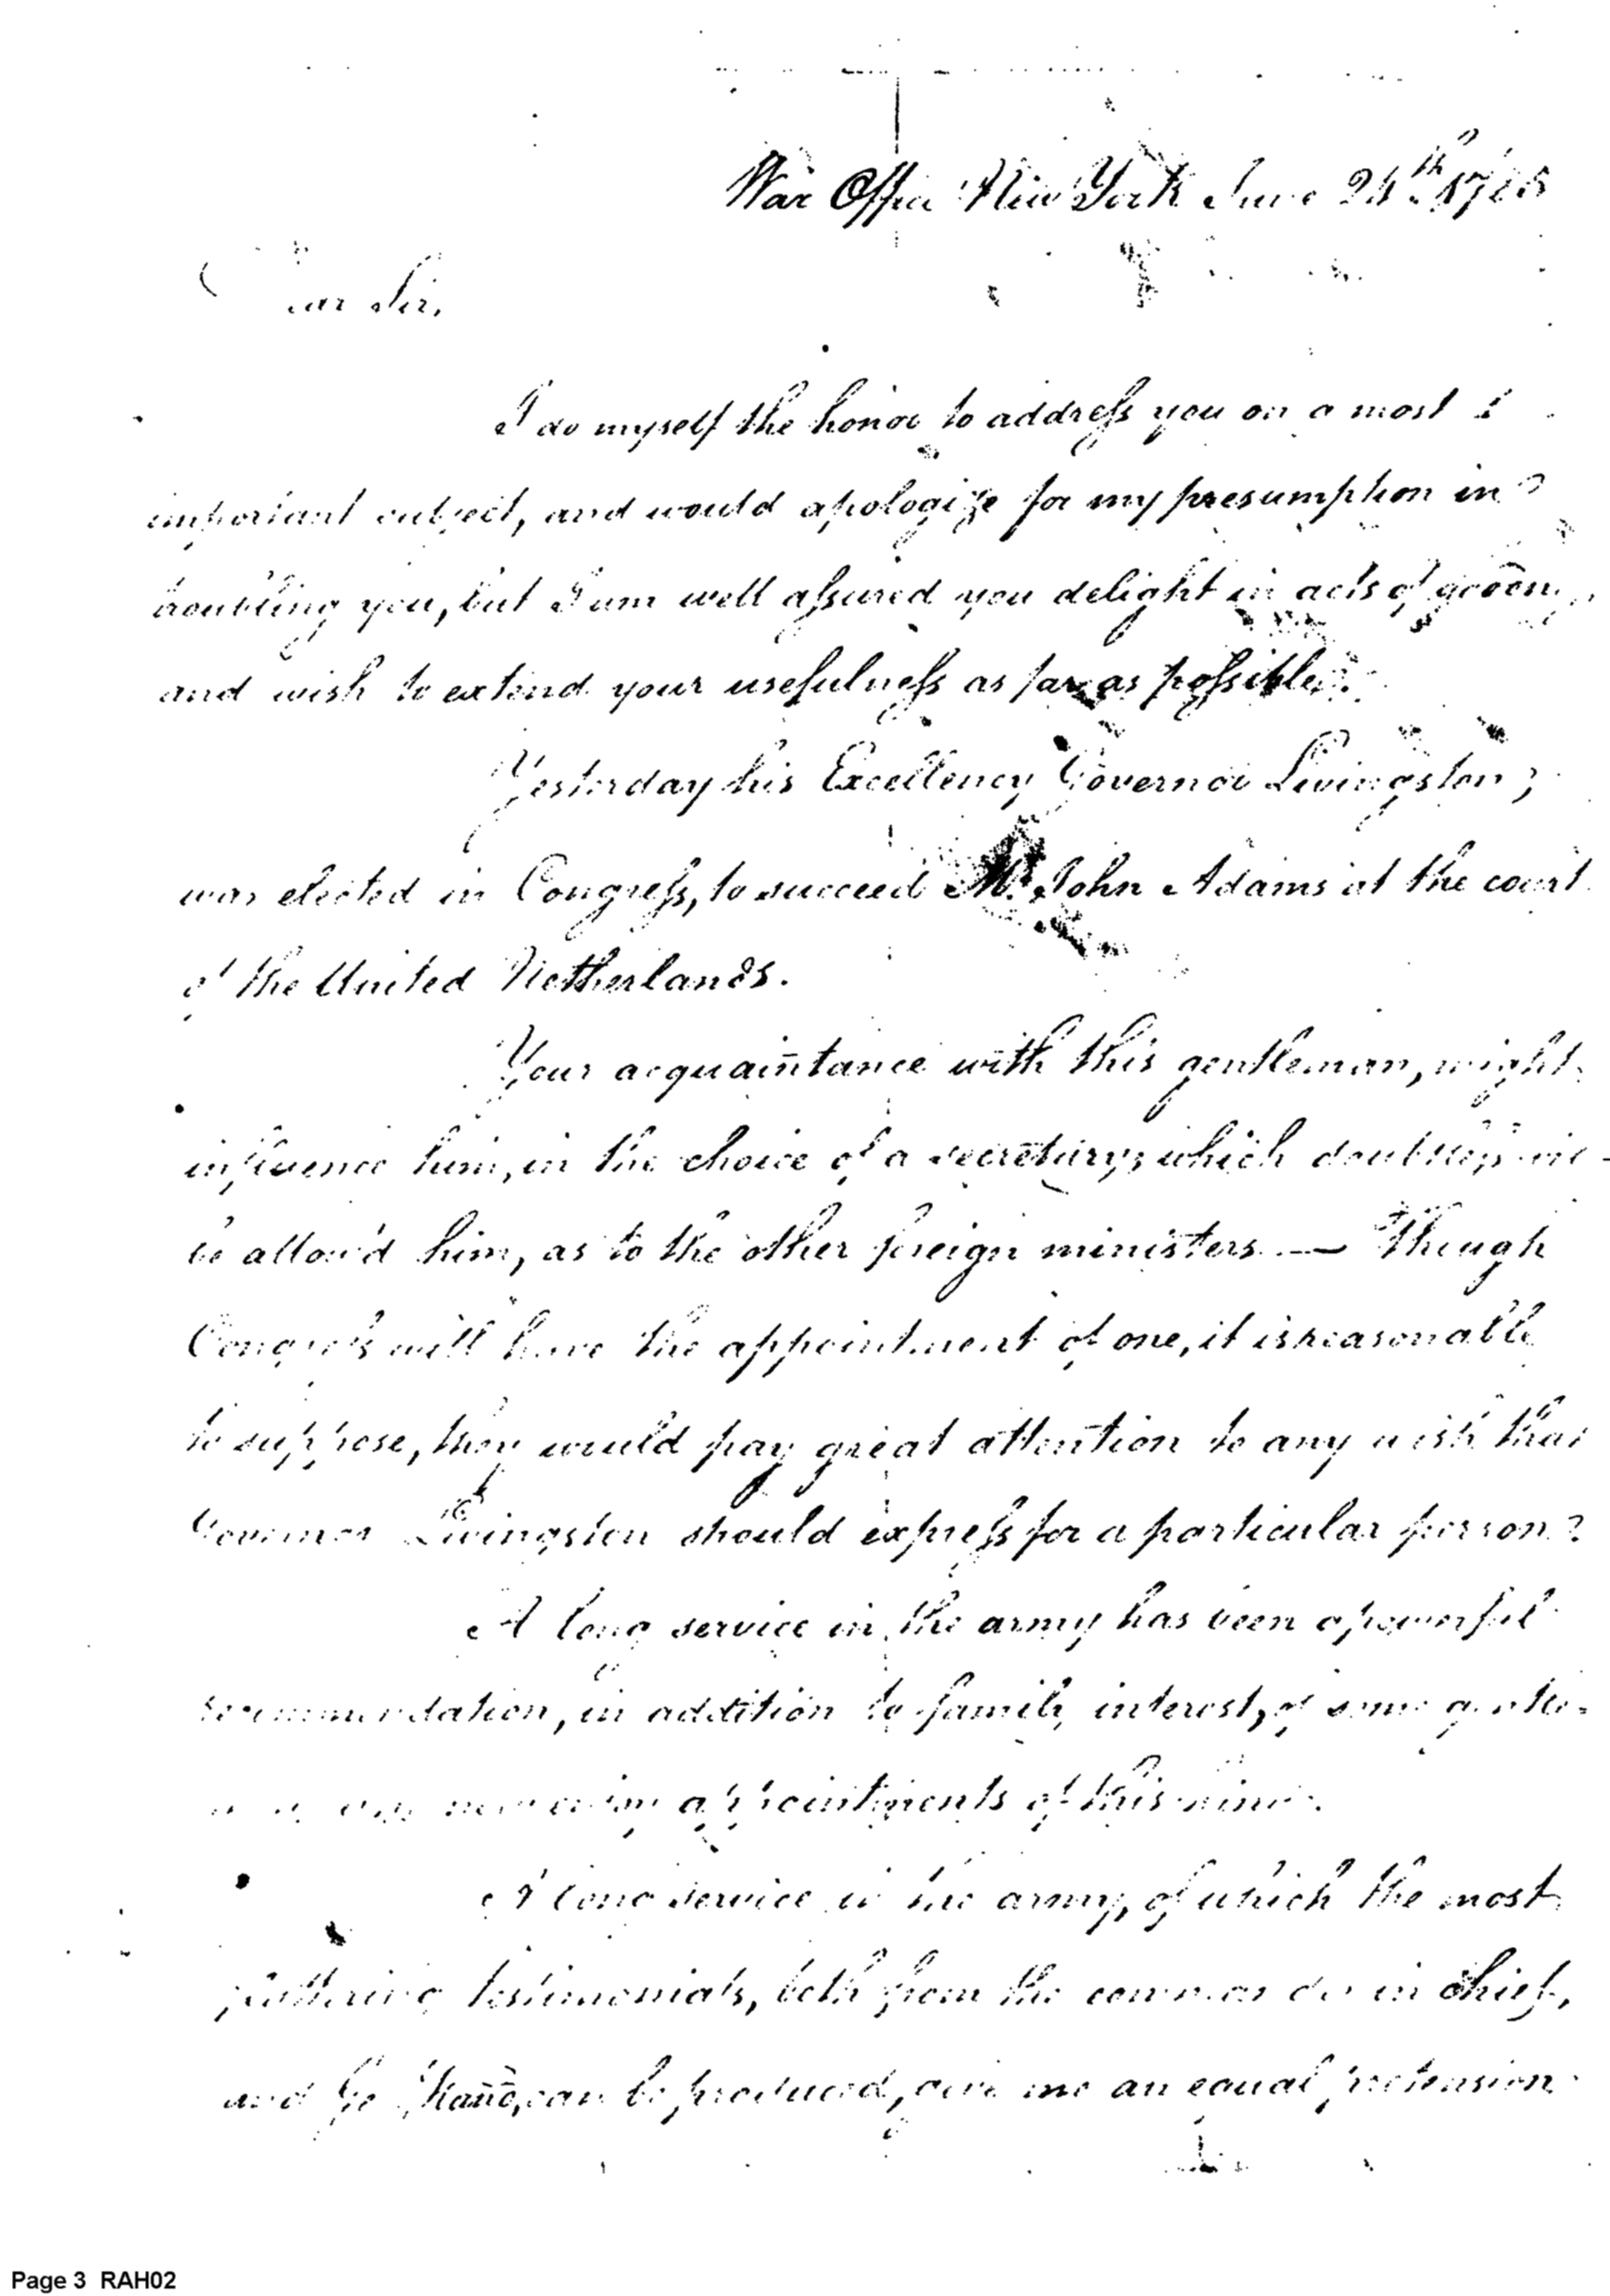 War Office New York June 24th 1785
Dear Sir,
I do myself the honor to address you on a most
important subject, and would apologize for my presumption in
troubling you, but I am well assured you delight in acts of
and wish to extend your usefulness as far as possible.
Yesterday his Excellency Governor Livingston,
was elected in Congress, to succeed Mr. John Adams at the court
of the United Netherlands.
Your acquaintance with this gentleman, might
influence him, in the choice of a secretary, which doubtless will
be allow'd him, as to the other foreign ministers — Though
Congress will have the appointment of one, it is reasonable
to suppose, they would pay great attention to any wish that
Governor Livingston should express for a particular person?
A long service in the army has been a powerful
recommendation, in addition to family interest, of some gentle-
appointments of this kind.
A long service in the army, of which the most
flattering testimonials, both from the commander in chief,
and Ge Hand, can be produced, give me an equal pretension
Page 3 RAH02